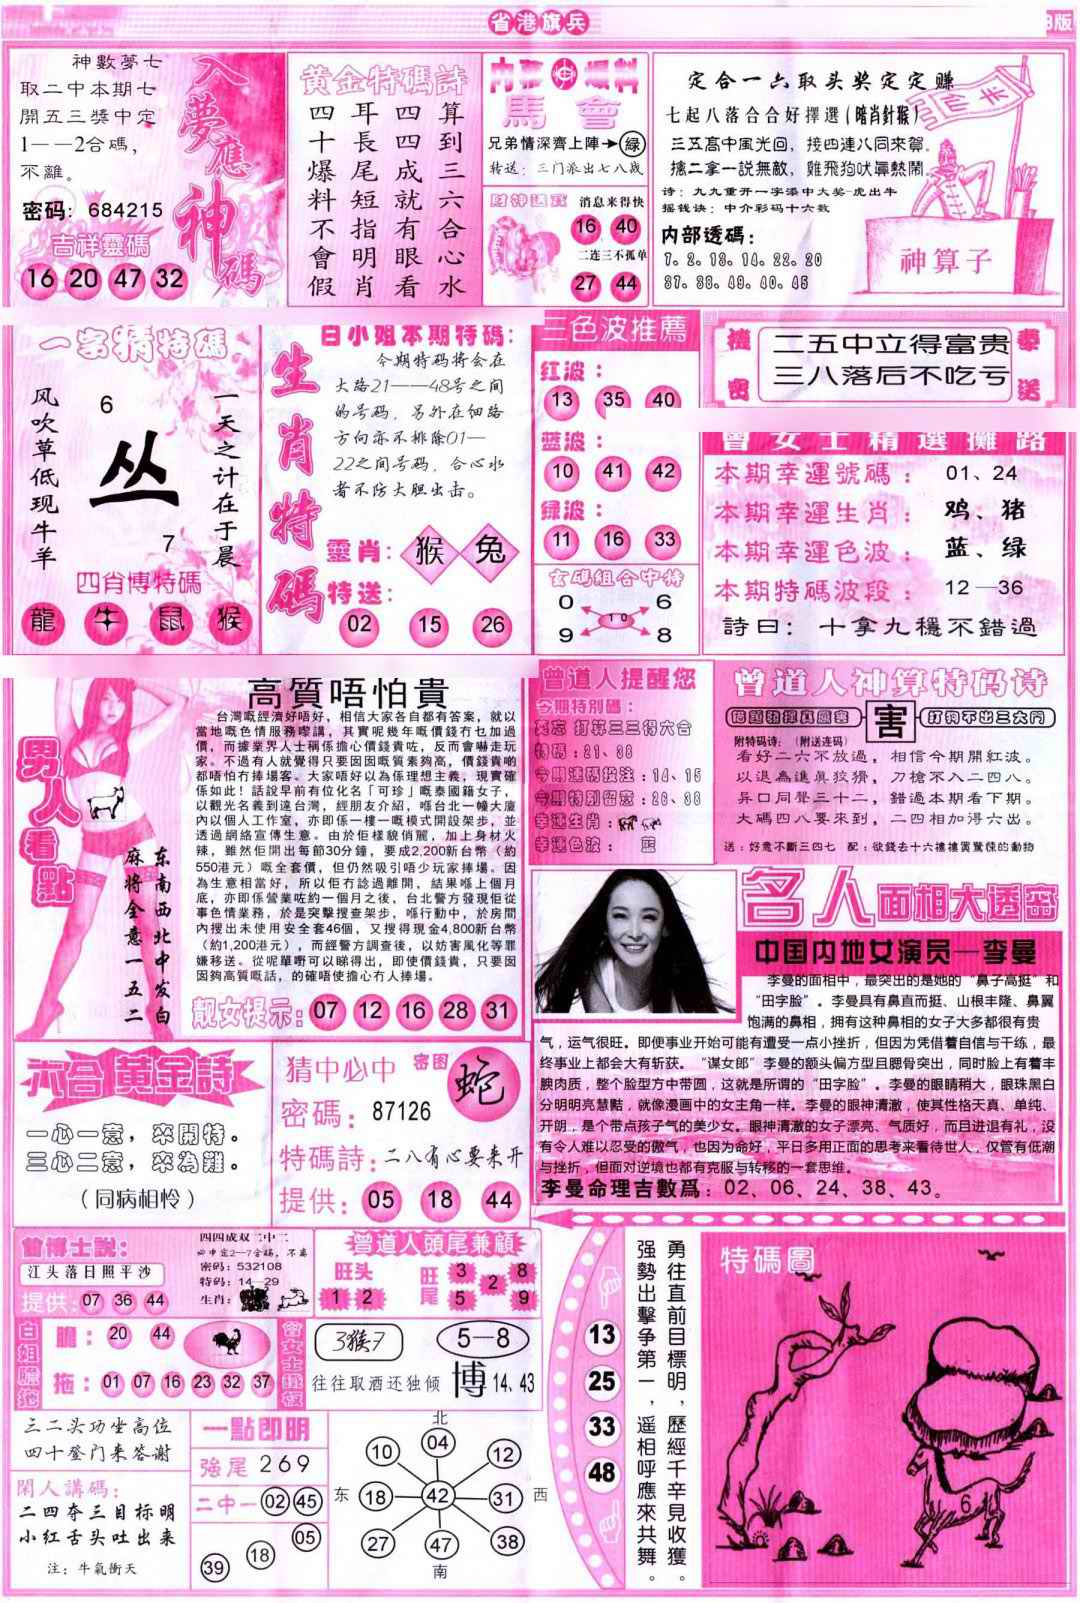 省港旗兵
B版
神數夢七
取二中本期七
開五三獎中定
1——2合碼，
不離。
密码：684215
吉祥靈碼
16 20 47 32
入夢應神碼
黄金特碼詩
四十爆料不會假
耳長尾短指明肖
四四成就有眼看
算到三六合心水
馬會
兄弟情深齊上陣→綠
转送：三门派出七八歲
消息来得快
16 40
二连三不孤单
27 44
定合一六取头奖定定赚
七起八落合合好擇選(暗肖針猴)
三五髙中風光回，接四連八同來贺。
擒二拿一説無敵，雞飛狗吠眞熱鬧
诗：九九重开一字添中大奖-虎出牛
摇钱诀：中介彩码十六数
内部透碼：
7.2.13.14.22.20
37.38.49.40.45
神算子
一字猜特碼
风吹草低现牛羊
6
丛
7
一天之计在于晨
四肖博特碼
龍 牛 鼠 猴
生肖特碼
白小姐本期特碼：
今期特码将会在
大路21——48号之间
的号码，另外在细路
方向亦不排除01—
22之间号码，合心水
者不防大胆出击。
靈肖：猴 兔
特送：
02 15 26
三色波推薦
红波：
13 35 40
蓝波：
10 41 42
绿波：
11 16 33
玄碼組合中特
0 6
10
9 8
機密
二五中立得富贵
三八落后不吃亏
曾女士精選攤路
本期幸運號碼：01、24
本期幸運生肖：鸡、猪
本期幸運色波：蓝、绿
本期特碼波段：12—36
詩曰：十拿九穩不錯過
男人看點
东南西北中发白
麻将全意一五二
高質唔怕貴
台灣嘅經濟好唔好，相信大家各自都有答案，就以
當地嘅色情服務嚟講，其實呢幾年嘅價錢冇乜加過
價，而據業界人士稱係擔心價錢貴咗，反而會嚇走玩
家。不過有人就覺得只要因因嘅質素夠高，價錢貴啲
都唔怕冇捧場客。大家唔好以為係理想主義，現實確
係如此！話說早前有位化名「可珍」嘅泰國籍女子，
以觀光名義到達台灣，經朋友介紹，喺台北一幢大廈
內以個人工作室，亦即係一樓一嘅模式開設架步，並
透過網絡宣傳生意。由於佢樣貌俏麗，加上身材火
辣，雖然佢開出每節30分鐘，要成2,200新台幣（約
550港元）嘅全套價，但仍然吸引唔少玩家捧場。因
為生意相當好，所以佢冇諗過離開，結果喺上個月
底，亦即係營業咗約一個月之後，台北警方發現佢從
事色情業務，於是突擊搜查架步，喺行動中，於房間
內搜出未使用安全套46個，又搜得現金4,800新台幣
（約1,200港元），而經警方調查後，以妨害風化等罪
嫌移送。從呢單嘢可以睇得出，即使價錢貴，只要因
因夠高質嘅話，的確唔使擔心冇人捧場。
靓女提示：07 12 16 28 31
曾道人提醒您
今期特別碼：
莫忘 打算三三得六合
特碼：21、38
今期連碼投注：14、15
今期特别留意：28、38
幸運生肖：
幸運色波：藍
曾道人神算特码诗
害
打狗不出三大门
附特码诗：（附送连码）
看好二六不放過，相信今期開紅波。
以退為進奥狡猾，刀槍不入二四八。
异口同聲三十二，錯過本期看下期。
大碼四八要來到，二四相加得六出。
送：好意不斷三四七 配：欲錢去十六禮禮買驚悚的動物
名人面相大透密
中国内地女演员—李曼
李曼的面相中，最突出的是她的“鼻子高挺”和
“田字脸”。李曼具有鼻直而挺、山根丰隆、鼻翼
饱满的鼻相，拥有这种鼻相的女子大多都很有贵
气，运气很旺。即便事业开始可能有遭受一点小挫折，但因为凭借着自信与干练，最
终事业上都会大有斩获。“谋女郎”李曼的额头偏方型且腮骨突出，同时脸上有着丰
腴肉质，整个脸型方中带圆，这就是所谓的“田字脸”。李曼的眼睛稍大，眼珠黑白
分明明亮慧黠，就像漫画中的女主角一样。李曼的眼神清澈，使其性格天真、单纯、
开朗，是个带点孩子气的美少女。眼神清澈的女子漂亮、气质好，而且进退有礼，没
有令人难以忍受的傲气，也因为命好，平日多用正面的思考来看待世人，仅管有低潮
与挫折，但面对逆境也都有克服与转移的一套思维。
李曼命理吉數爲：02、06、24、38、43。
六合黄金詩
一心一意，來開特。
三心二意，來為難。
（同病相怜）
猜中必中 密图 蛇
密碼：87126
特碼詩：二八有心要来开
提供：05 18 44
曾博士説：
江头落日照平沙
提供：07 36 44
四四成双二中二
必中定2—7合碼，不离
密码：532108
特码：14—29
生肖：
曾道人頭尾兼顧
旺头
1 2
旺尾
3 2 8
5 9
白姐膽拖
膽：20 44
拖：01 07 16 23 32 37
3猴7
5—8
往往取酒还独倾 博14、43
三二头功坐高位
四十登门来答谢
閑人講碼：
二四夺三目标明
小红舌头吐出来
注：牛氣衝天
一點即明
強尾 269
二中一 02 45
05
18
39
北
04
10 12
东 18 42 31 西
27 38
47
南
13
25
33
48
勇往直前目標明，歷經千辛見收獲。
强勢出擊争第一，遥相呼應來共舞。
特碼圖
6